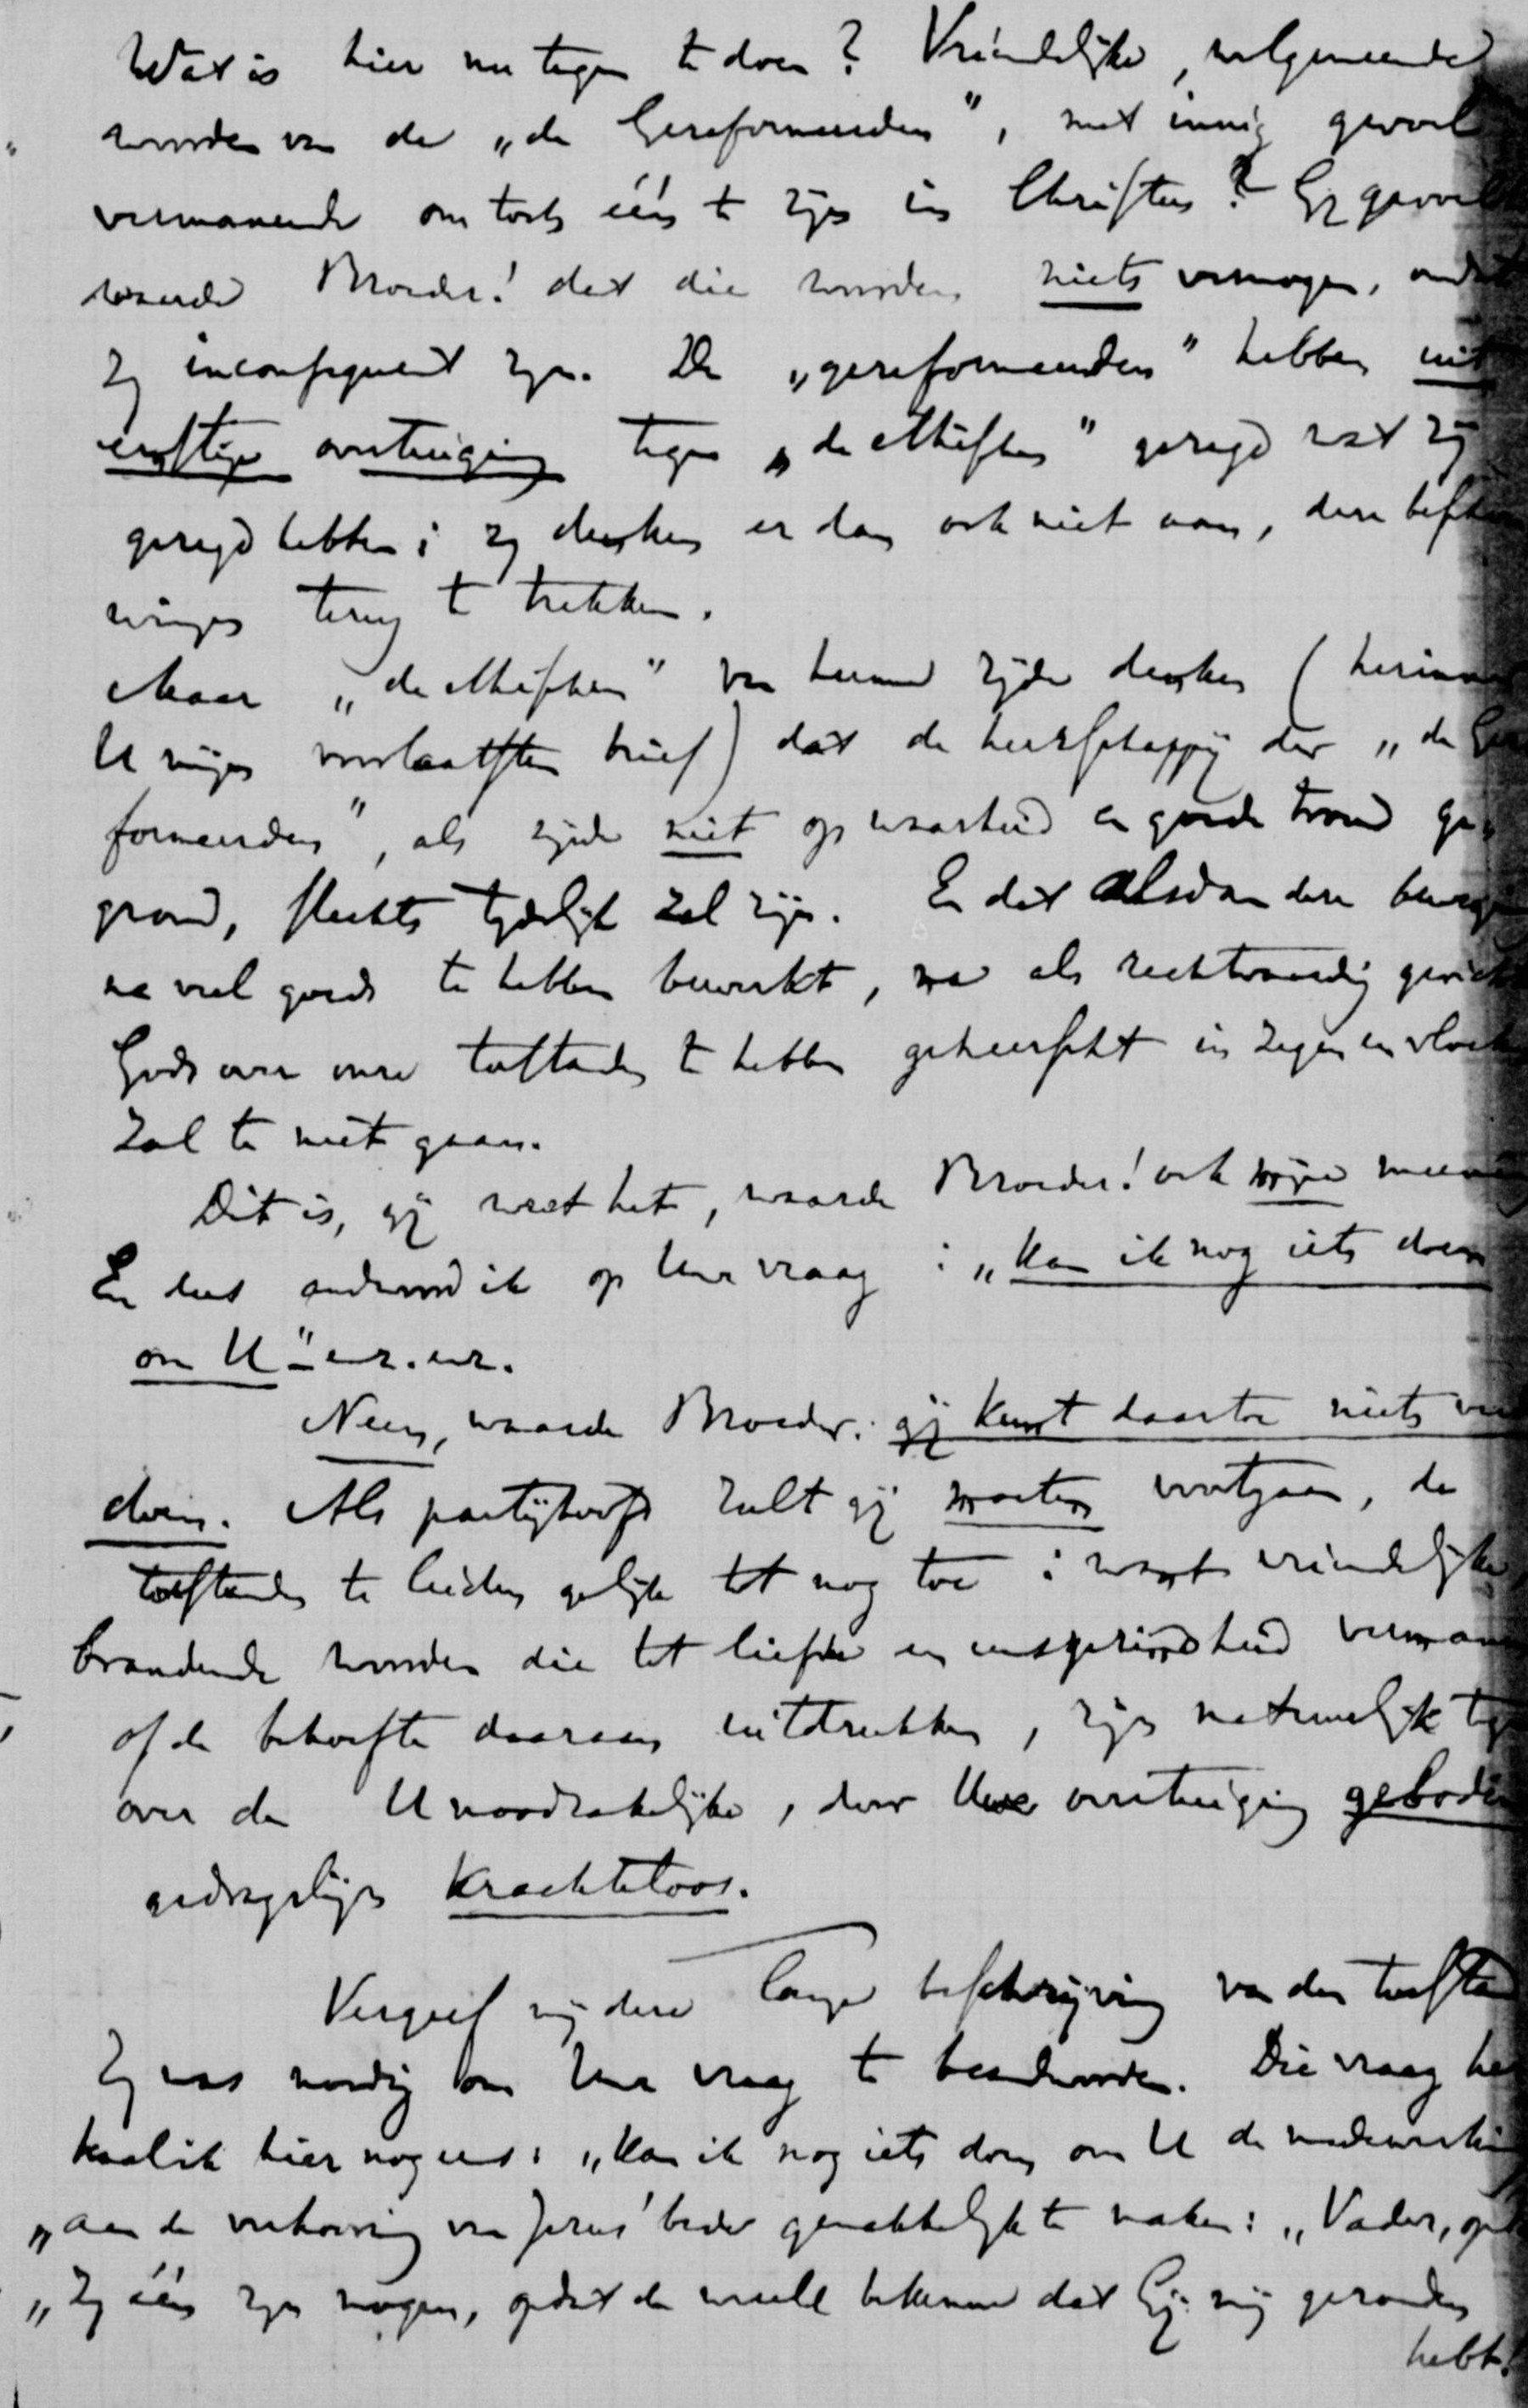 Wat is hier nu tegen te doen? Vriendelijke, welgemeende
woorden van de „de Gereformeerden", met innig gevoel
vermanende om toch één te zijn in Christus? Gij gevoelt
waarde Broeder! dat die woorden niets vermogen, omdat
zij inconsequent zijn. De „gereformeerden" hebben uit
ernstige overtuiging tegen „de ethischen" gezegd wat zij
gezegd hebben; zij denken er dan ook niet aan, deze beschou
wingen terug te trekken.
Maar „de ethischen" van hunne zijde denken (herinner
U mijn voorlaatsten brief) dat de heerschappij der „de Gere
formeerden", als zijnde niet op waarheid en goede trouw ge„
grond, slechts tijdelijk zal zijn. En dat alsdan deze beweging
na veel goeds te hebben bewerkt, na als rechtvaardig gericht
Gods over onze toestanden te hebben geheerscht in zegen en vloek
zal te niet gaan.
Dit is, gij weet het, waarde Broeder! ook mijne meening
En dus antwoord ik op Uwe vraag: „kan ik nog iets doen
om U" enz. enz.
Neen, waarde Broeder: gij kunt daartoe niets veel
doen. Als partijhoofd zult gij moeten voortgaan, de
toestanden te leiden gelijk tot nog toe: want vriendelijke
brandende woorden die tot liefde en eensgezindheid vermanen
of de behoefte daaraan uitdrukken, zijn natuurlijk tegen
over de U noodzakelijke, door Uwe overtuiging geboden
gedragslijn krachteloos.
Vergeef mij deze lange beschrijving van den toestand
Zij was noodig om Uwe vraag te beantwoorden. Die vraag her
haal ik hier nog eens: „kan ik nog iets doen om U de medewerking
„aan de verhooring van Jezus' bede gemakkelijk te maken: „Vader, opdat
„Zij één zijn mogen, opdat de wereld bekenne dat Gij mij gezonden
hebt!